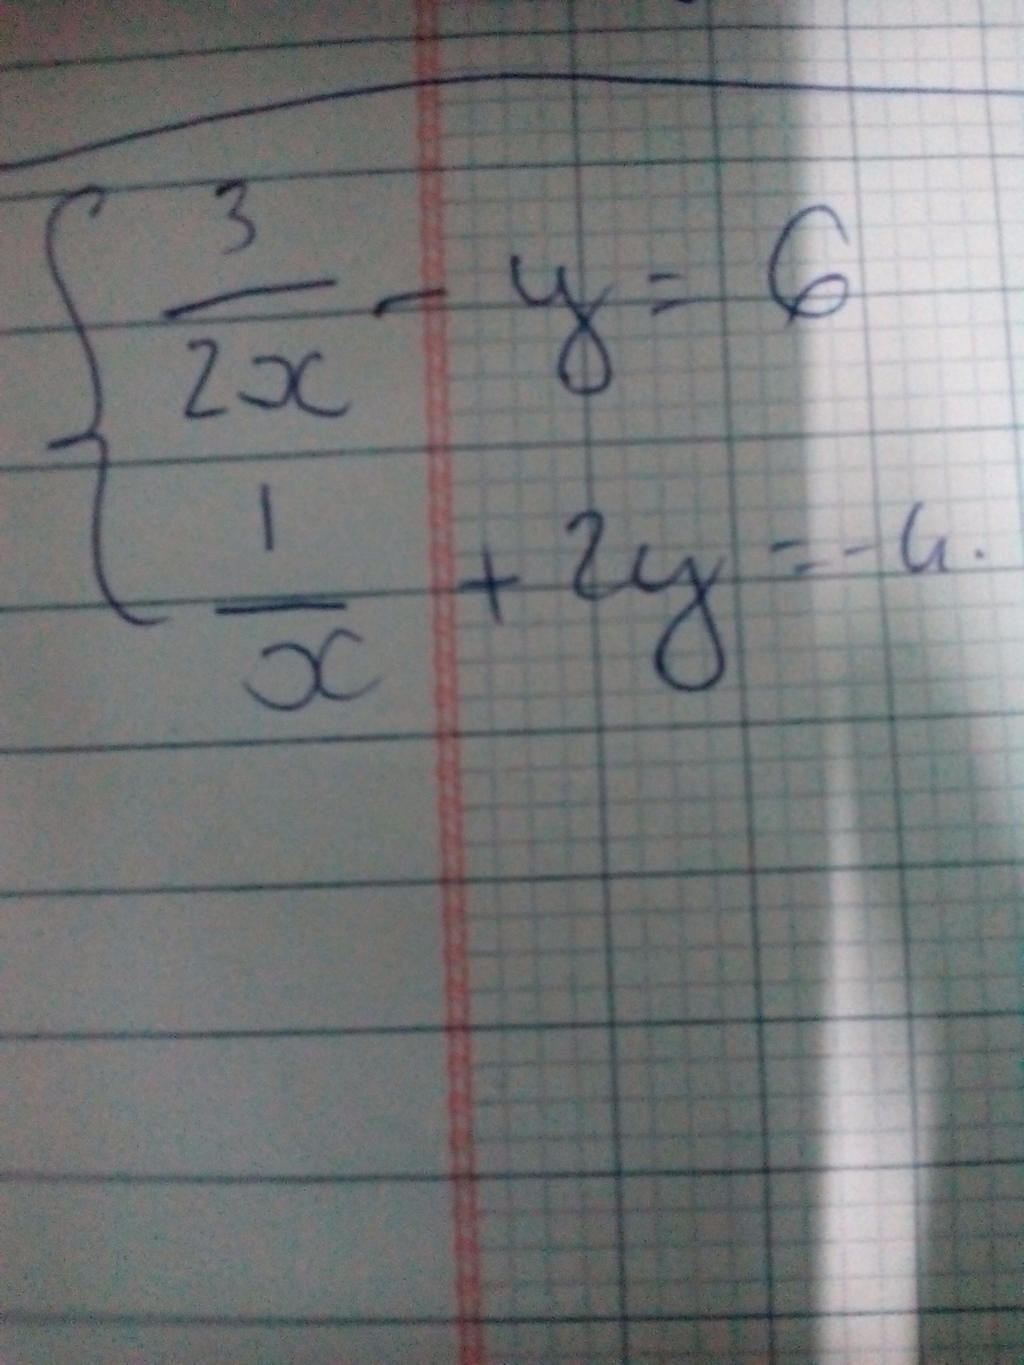 3/2x - y = 6
1/x + 2y = -4.